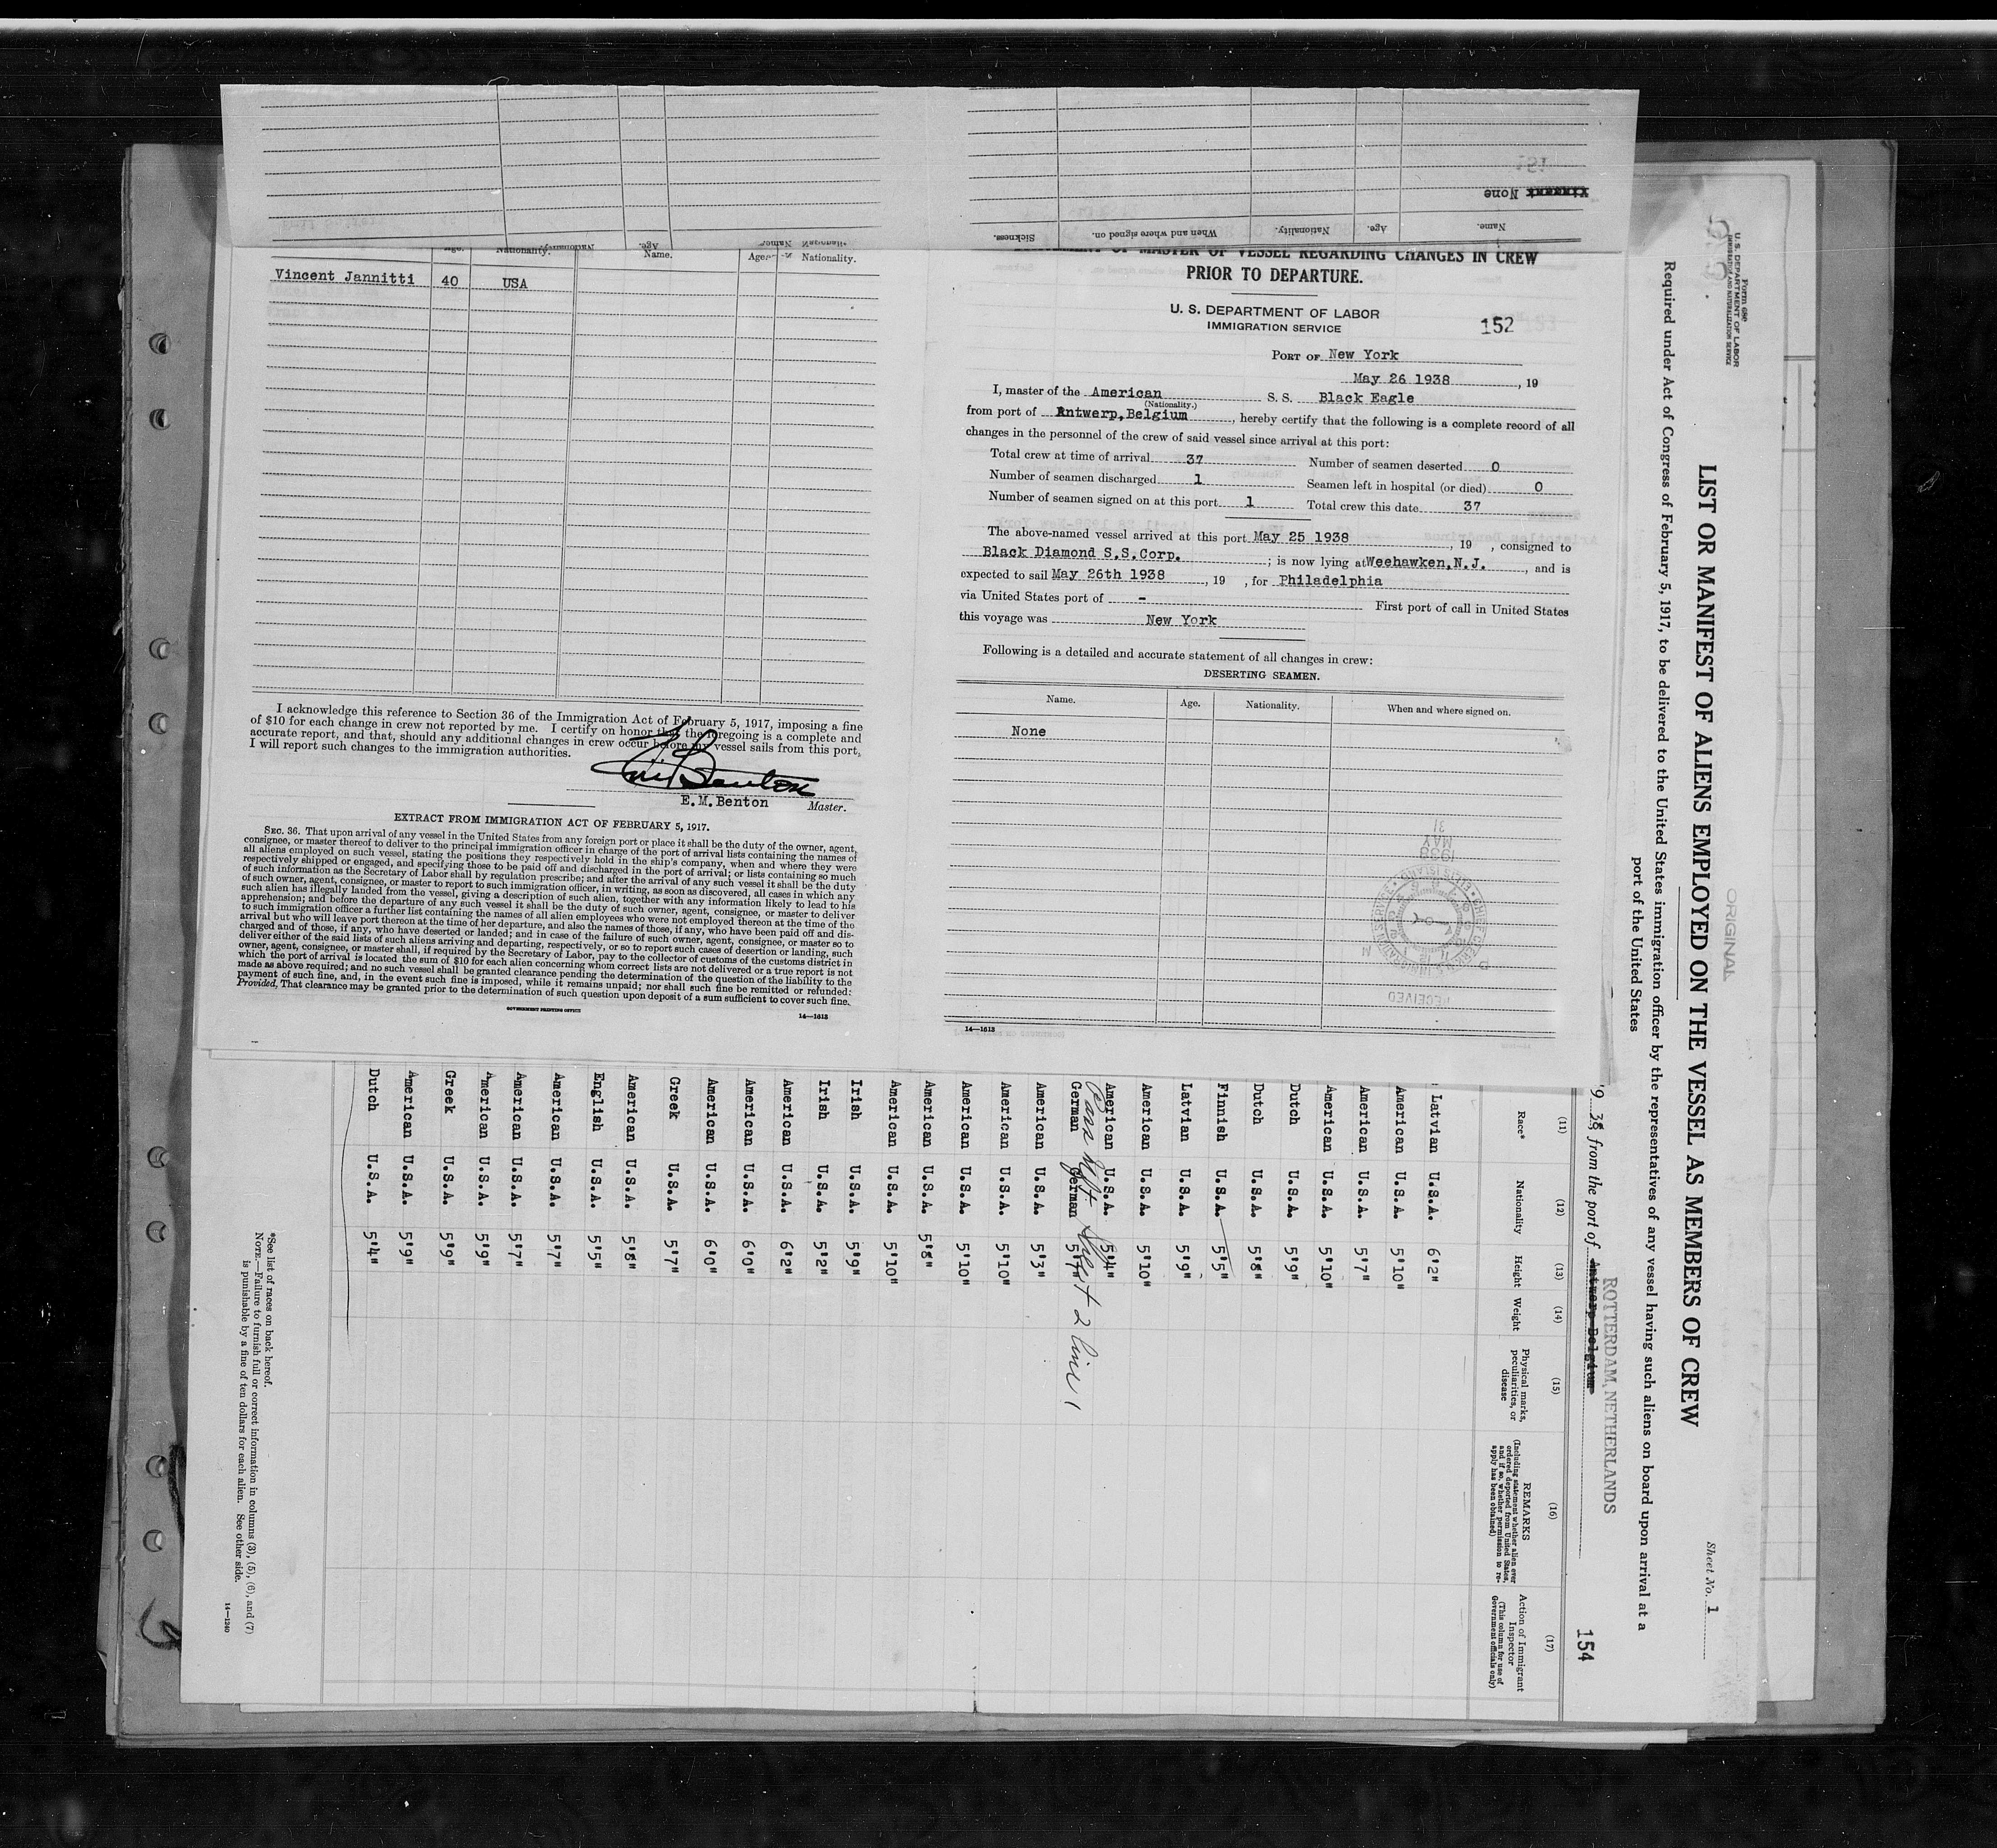 151
None
Name.
Age.
Nationality.
When and where signed on.
Sickness.
Nationality.
Name.
Age.
Nationality.
Vincent Jannitti 40 USA
I acknowledge this reference to Section 36 of the Immigration Act of February 5, 1917, imposing a fine
of $10 for each change in crew not reported by me. I certify on honor that the foregoing is a complete and
accurate report, and that, should any additional changes in crew occur before my vessel sails from this port,
I will report such changes to the immigration authorities.
E.M.Benton
Master.
EXTRACT FROM IMMIGRATION ACT OF FEBRUARY 5, 1917.
SEC. 36. That upon arrival of any vessel in the United States from any foreign port or place it shall be the duty of the owner, agent,
consignee, or master thereof to deliver to the principal immigration officer in charge of the port of arrival lists containing the names of
all aliens employed on such vessel, stating the positions they respectively hold in the ship's company, when and where they were
respectively shipped or engaged, and specifying those to be paid off and discharged in the port of arrival; or lists containing so much
of such information as the Secretary of Labor shall by regulation prescribe; and after the arrival of any such vessel it shall be the duty
of such owner, agent, consignee, or master to report to such immigration officer, in writing, as soon as discovered, all cases in which any
such alien has illegally landed from the vessel, giving a description of such alien, together with any information likely to lead to his
apprehension; and before the departure of any such vessel it shall be the duty of such owner, agent, consignee, or master to deliver
to such immigration officer a further list containing the names of all alien employees who were not employed thereon at the time of the
arrival but who will leave port thereon at the time of her departure, and also the names of those, if any, who have been paid off and dis-
charged and of those, if any, who have deserted or landed; and in case of the failure of such owner, agent, consignee, or master so to
deliver either of the said lists of such aliens arriving and departing, respectively, or so to report such cases of desertion or landing, such
owner, agent, consignee, or master shall, if required by the Secretary of Labor, pay to the collector of customs of the customs district in
which the port of arrival is located the sum of $10 for each alien concerning whom correct lists are not delivered or a true report is not
made as above required; and no such vessel shall be granted clearance pending the determination of the question of the liability to the
payment of such fine, and, in the event such fine is imposed, while it remains unpaid; nor shall such fine be remitted or refunded:
Provided, That clearance may be granted prior to the determination of such question upon deposit of a sum sufficient to cover such fine.
GOVERNMENT PRINTING OFFICE
14—1613
OF MASTER OF VESSEL REGARDING CHANGES IN CREW
PRIOR TO DEPARTURE.
U. S. DEPARTMENT OF LABOR
IMMIGRATION SERVICE
152
PORT OF New York
May 26 1938, 19
I, master of the American S. S. Black Eagle
(Nationality.)
from port of Antwerp, Belgium, hereby certify that the following is a complete record of all
changes in the personnel of the crew of said vessel since arrival at this port:
Total crew at time of arrival 37 Number of seamen deserted 0
Number of seamen discharged 1 Seamen left in hospital (or died) 0
Number of seamen signed on at this port 1 Total crew this date 37
The above-named vessel arrived at this port May 25 1938, 19 , consigned to
Black Diamond S.S.Corp. ; is now lying at Weehawken, N.J., and is
expected to sail May 26th 1938, 19 , for Philadelphia
via United States port of - First port of call in United States
this voyage was New York
Following is a detailed and accurate statement of all changes in crew:
DESERTING SEAMEN.
Name. Age. Nationality. When and where signed on.
None
1938
MAY
31
RECEIVED
14—1613
Form 680
U. S. DEPARTMENT OF LABOR
IMMIGRATION AND NATURALIZATION SERVICE
ORIGINAL
Sheet No. 1
LIST OR MANIFEST OF ALIENS EMPLOYED ON THE VESSEL AS MEMBERS OF CREW
Required under Act of Congress of February 5, 1917, to be delivered to the United States immigration officer by the representatives of any vessel having such aliens on board upon arrival at a
port of the United States
ROTTERDAM, NETHERLANDS
38, from the port of Antwerp Belgium
154
(11) (12) (13) (14) (15) (16) (17)
Race* Nationality Height Weight Physical marks, peculiarities, or disease
REMARKS
(Including statement whether alien ever ordered deported from United States, and if so, whether permission to re-apply has been obtained)
Action of Immigrant Inspector
(This column for use of Government officials only)
Latvian U.S.A. 6'2"
American U.S.A. 5'10"
American U.S.A. 5'7"
American U.S.A. 5'10"
Dutch U.S.A. 5'9"
Dutch U.S.A. 5'8"
Finnish U.S.A. 5'5"
Latvian U.S.A. 5'9"
American U.S.A. 5'10"
American U.S.A. 5'4"
German German 5'7"
American U.S.A. 5'3"
American U.S.A. 5'10"
American U.S.A. 5'10"
American U.S.A. 5'8"
American U.S.A. 5'10"
Irish U.S.A. 5'9"
Irish U.S.A. 5'2"
American U.S.A. 6'2"
American U.S.A. 6'0"
American U.S.A. 6'0"
Greek U.S.A. 5'7"
American U.S.A. 5'8"
English U.S.A. 5'5"
American U.S.A. 5'7"
American U.S.A. 5'7"
American U.S.A. 5'9"
Greek U.S.A. 5'9"
American U.S.A. 5'9"
Dutch U.S.A. 5'4"
*See list of races on back hereof.
NOTE.—Failure to furnish full or correct information in columns (3), (5), (6), and (7)
is punishable by a fine of ten dollars for each alien. See other side.
14—1240